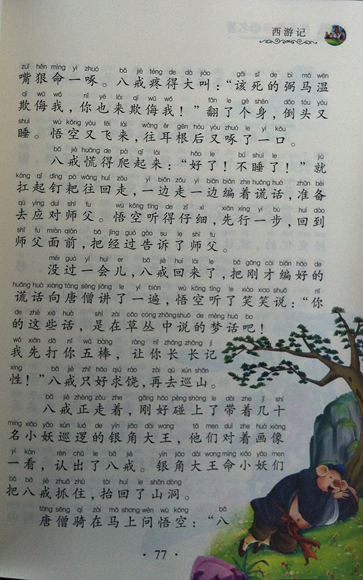 西游记
zuǐ hěn mìng yì zhuó bā jiè téng de dà jiào gāi sǐ de bì mǎ wēn
嘴狠命一啄。八戒疼得大叫：“该死的弼马温
欺侮我，你也来欺侮我！”翻了个身，倒头又
睡。悟空又飞来，往耳根后又啄了一口。
八戒慌得爬起来：“好了！不睡了！”就
扛起钉耙往回走，一边走一边编着谎话，准备
去应对师父。悟空听得仔细，先行一步，回到
师父面前，把经过告诉了师父。
没过一会儿，八戒回来了，把刚才编好的
谎话向唐僧讲了一遍，悟空听了笑笑说：“你
的这些话，是在草丛中说的梦话吧！
我先打你五棒，让你长长记
性！”八戒只好求饶，再去巡山。
八戒正走着，刚好碰上了带着几十
名小妖巡逻的银角大王，他们对着画像
一看，认出了八戒。银角大王命小妖们
把八戒抓住，抬回了山洞。
唐僧骑在马上问悟空：“八
·77·